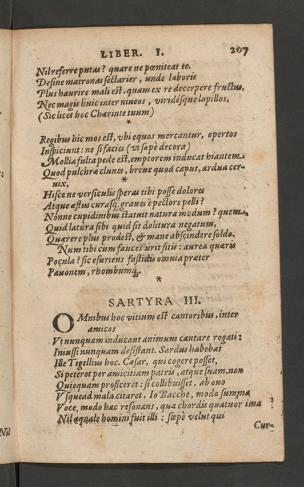 LIBER. I. 207
Nil referre putas? quare ne pœniteat te.
Desine matronas sectarier, unde laboris
Plus haurire mali est. quam ex re decerpere fructus.
Nec magis huic inter niueos, viridesque lapillos,
(Sic licet hoc Charinte tuum)
*
Regibus hic mos est, vbi equos mercantur, opertos
Inspiciunt: ne si facies (vt sæpè decora)
Mollia fulta pede est, emptorem inducat hiantem
Quod pulchræ clunes, breue quod caput, ardua cer-
uix,
*
Hisce ne versiculis speras tibi posse dolores
Atque æstus curasq; graueis è pectore pelli?
Nonne cupidinibus statuit natura modum? quem
Quid latura sibi quid sit dolitura negatum,
Quærere plus prodest, & inane abscindere soldo.
Num tibi cum fauces vrit sitis: aurea quæris
Pocula? sic esuriens fastidis omnia præter
Pauonem, rhombumq;
*
SARTYRA III.
OMnibus hoc vitium est cantoribus, inter
amicos
Vt nunquam inducant animum cantare rogati:
Iniussi nunquam desistant. Sardus habebat
Ille Tigellius hoc. Cæsar, qui cogere posset,
Si peteret per amicitiam patris, atque suam, non
Quicquam proficeret: si collibuisset, ab ouo
Vsque ad mala citaret. Io Bacche, modo summa
Voce, modo hac resonans, quæ chordis quatuor ima
Nil æquale homini fuit illi: sæpè velut qui
Cur-
Nil